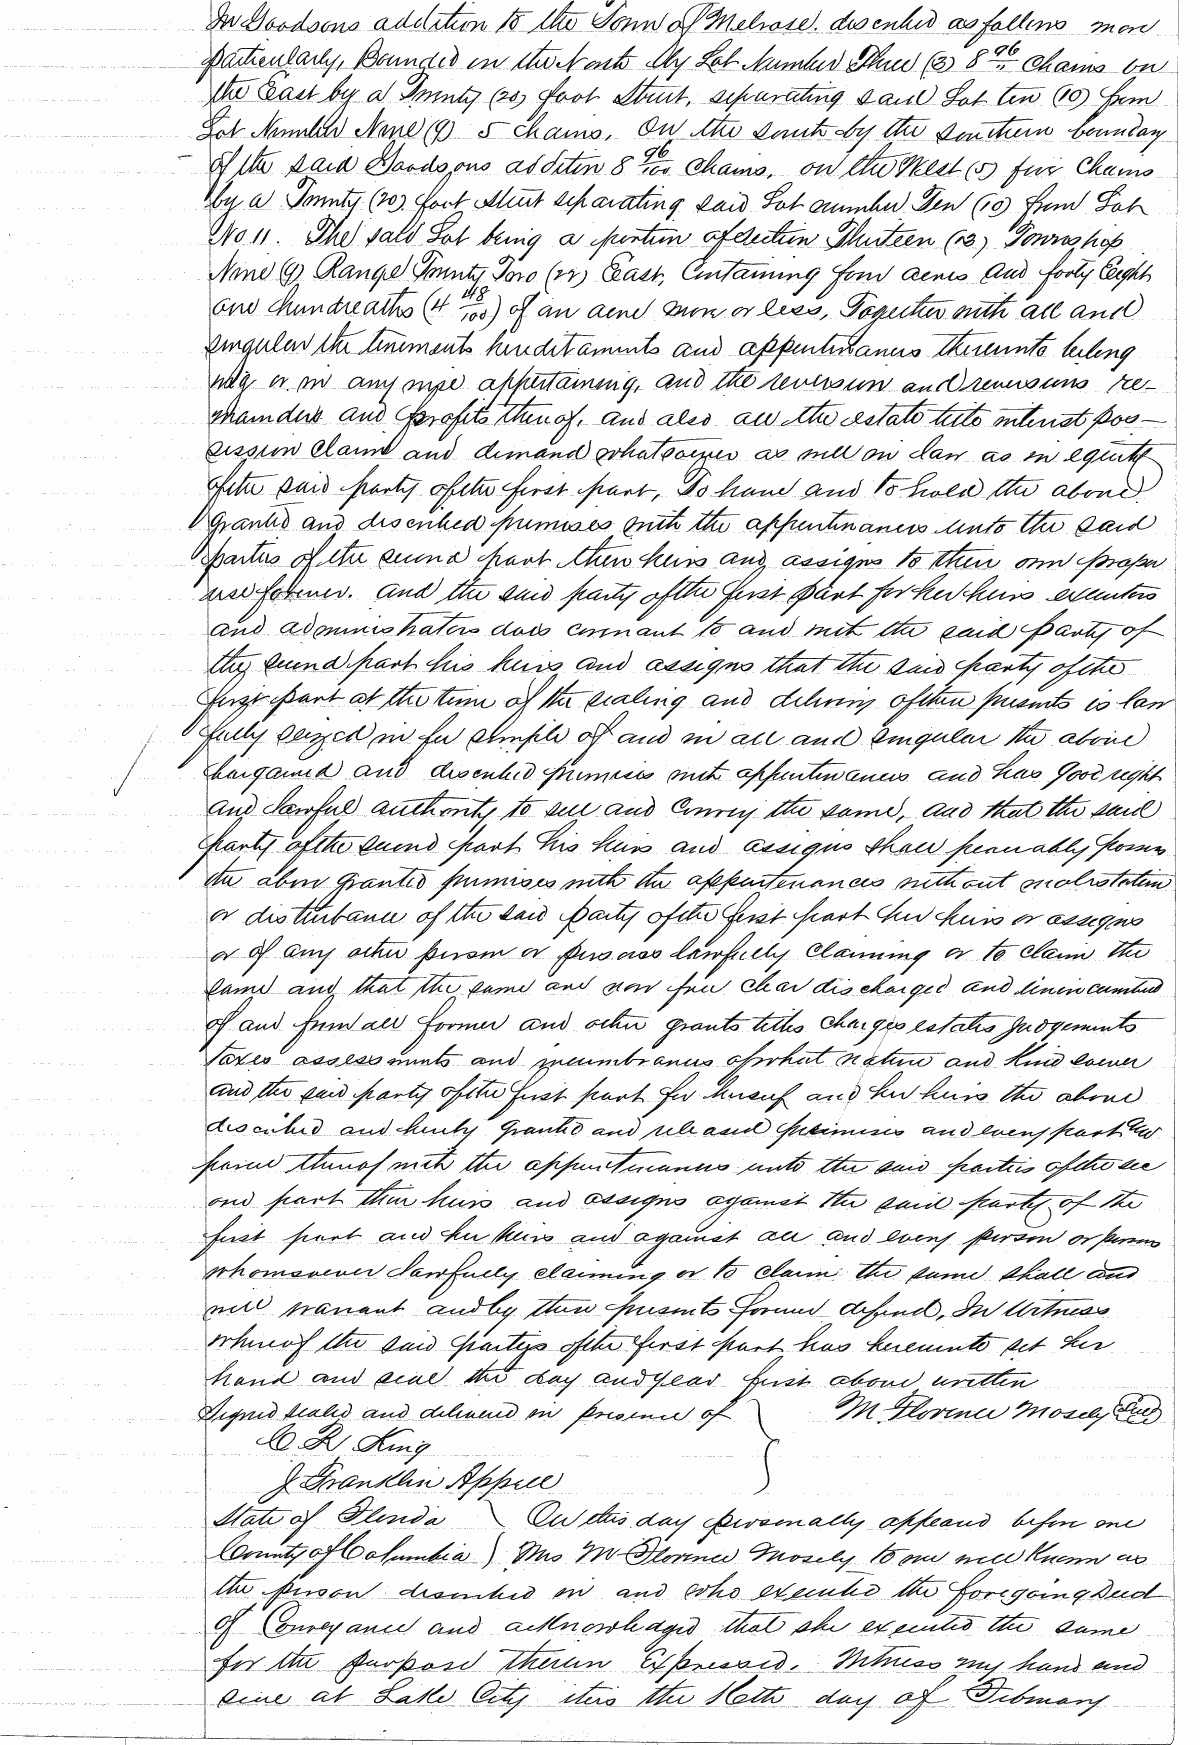 In Goodsons addition to the Town of Melrose. described as follows more
particularly, Bounded on the North by Lot Number Three (3) 8 96/100 chains on
the East by a Twenty (20) foot Street, separating said Lot ten (10) from
Lot Number Nine (9) 5 chains. On the south by the southern boundary
of the said Goodsons addition 8 96/100 chains, on the West (5) five chains
by a Twenty (20) foot street separating said Lot number Ten (10) from Lot
No. 11. The said Lot being a portion of Section Thirteen (13) Township
Nine (9) Range Twenty Two (22) East, Containing four acres and forty Eight
one hundreaths (4 48/100) of an acre more or less, Together with all and
singular the tenements hereditaments and appertinances thereunto belong
ing or in any wise appertaining, and the reversion and reversions re-
mainders and profits thereof, and also all the estate title interest pos-
session claim and demand whatsoever as well in law as in equity
of the said party of the first part, To have and to hold the above
granted and described premises with the appertinances unto the said
parties of the second part their heirs and assigns to their own proper
use forever. And the said party of the first part for her heirs executors
and administrators does covenant to and with the said party of
the second part his heirs and assigns that the said party of the
first part at the time of the sealing and delivery of these presents is law
fully seized in fee simple of and in all and singular the above
bargained and described premises with appertinances and has good right
and lawful authority to sell and convey the same, and that the said
party of the second part his heirs and assigns shall peaceably possess
the above granted premises with the appertenances without molestation
or disturbance of the said party of the first part her heirs or assigns
or of any other person or persons lawfully claiming or to claim the
same and that the same are now free clear discharged and unincumbered
of and from all former and other grants titles charges estates judgements
taxes assessments and incumbrances of what nature and kind soever
and the said party of the first part for herself and her heirs the above
described and hereby granted and released premises and every part and
parcel thereof with the appertinances unto the said parties of the sec
ond part their heirs and assigns against the said party of the
first part and her heirs and against all and every person or persons
whomsoever lawfully claiming or to claim the same shall and
will warrant and by these presents forever defend, In Witness
whereof the said partys of the first part has hereunto set her
hand and seal the day and year first above written
Signed sealed and delivered in presence of M. Florence Mosely Seal
C. R. King
J Franklin Appell
State of Florida ) On this day personally appeared before me
County of Columbia ) Mrs M Florence Mosely to me well known as
the person described in and who executed the foregoing Deed
of Conveyance and acknowledged that she executed the same
for the purpose therein Expressed. Witness my hand and
seal at Lake City this the 16th day of February